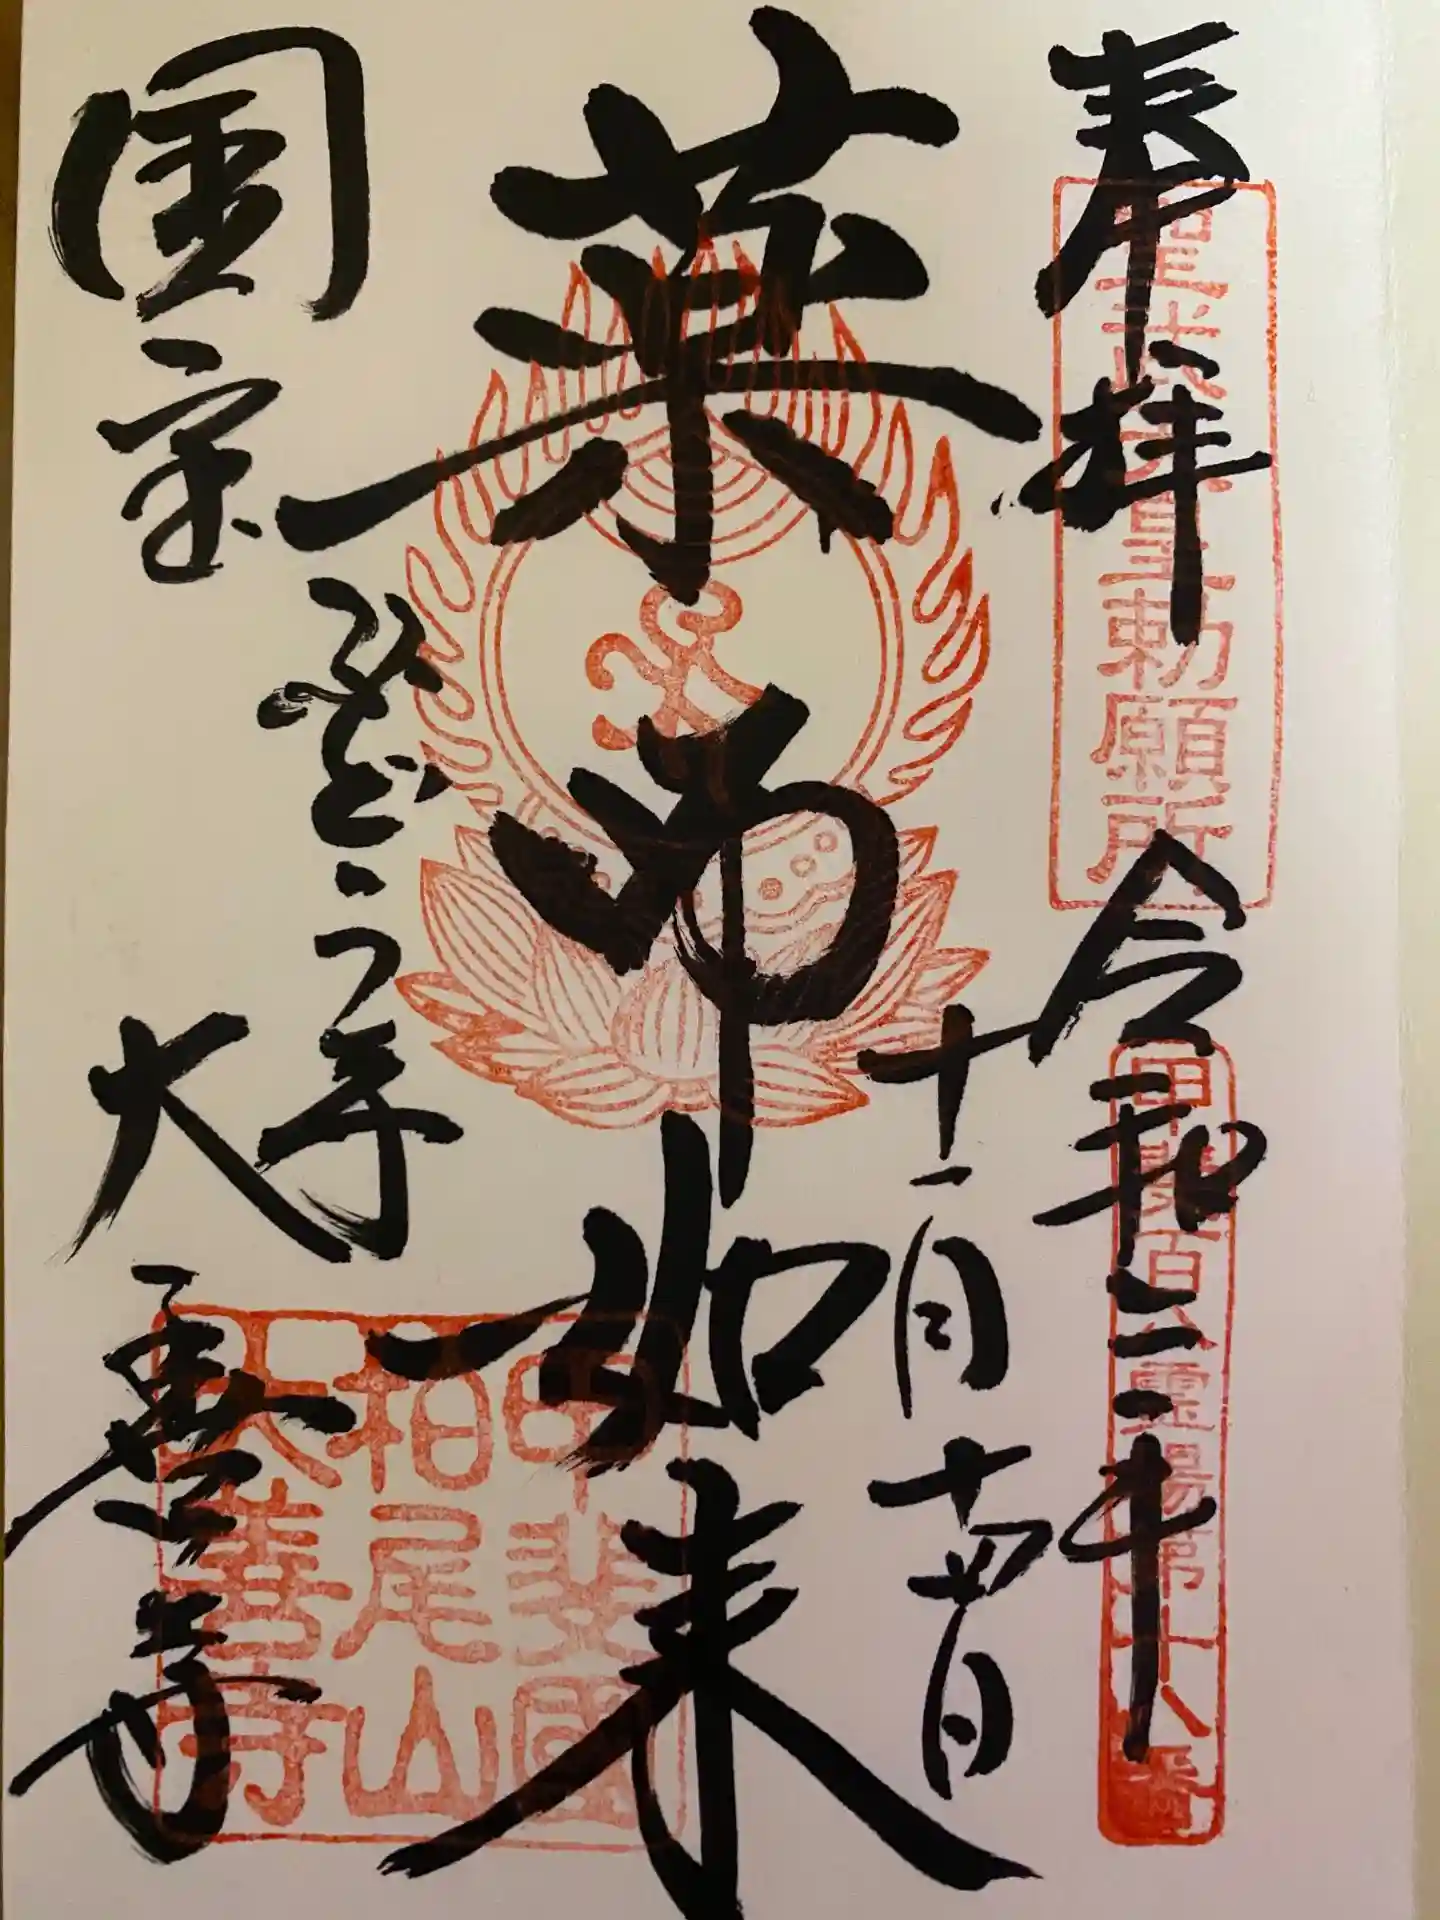 奉拝
聖武天皇勅願所
令和三年
甲斐百八霊場第十八番
十一月十四日
薬師如来
甲斐國
柏尾山
大善寺
ぶどう寺
国宝
大善寺